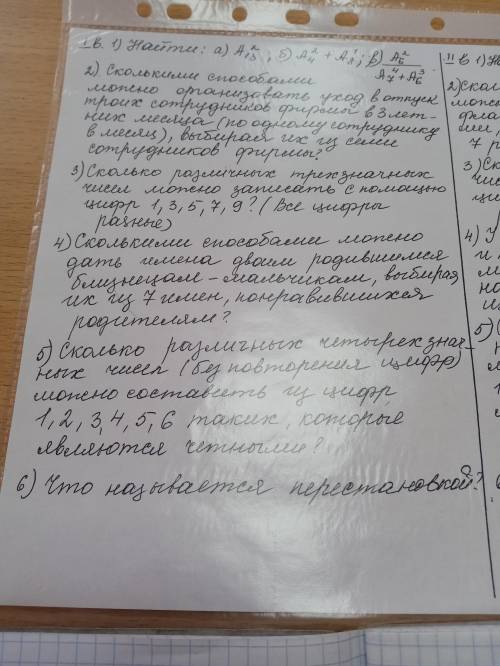 I в. 1) Найти: а) A²₁₃; б) A²₄ + A¹; в) A²₆ / A⁴₇ + A³₆
2) Сколькими способами
можно организовать уход в отпуск
троих сотрудников фирмы в 3 лет-
них месяца (по одному сотруднику
в месяц), выбирая их из семи
сотрудников фирмы?
3) Сколько различных трехзначных
чисел можно записать с помощью
цифр 1, 3, 5, 7, 9? (Все цифры
разные)
4) Сколькими способами можно
дать имена двоим родившимся
близнецам-мальчикам, выбирая
их из 7 имен, понравившихся
родителям?
5) Сколько различных четырехзнач-
ных чисел (без повторения цифр)
можно составить из цифр
1, 2, 3, 4, 5, 6 таких, которые
являются четными?
6) Что называется перестановкой?
II в. 1) На
2) Скол
7 р
3) Ско
чис
ци
4) У
и
м
на
из
5)